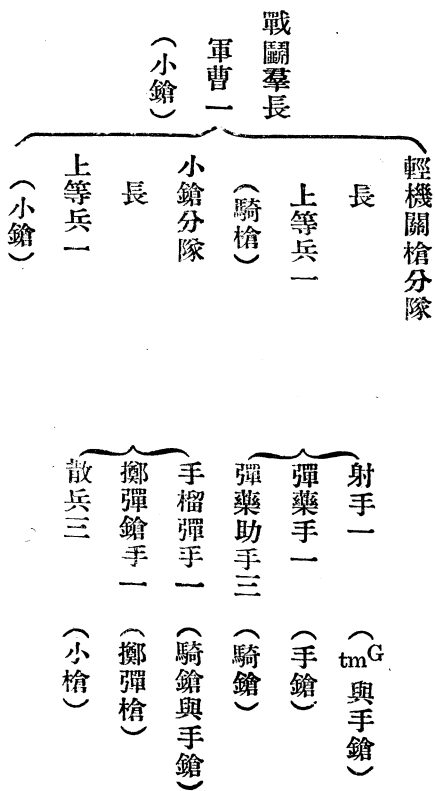 戰鬭羣長
軍曹一
（小鎗）
輕機關槍分隊
長
上等兵一
（騎槍）
小鎗分隊
長
上等兵一
（小鎗）
射手一（tmG與手鎗）
彈藥手一（手鎗）
彈藥助手三（騎鎗）
手榴彈手一（騎鎗與手鎗）
擲彈鎗手一（擲彈槍）
散兵三（小槍）